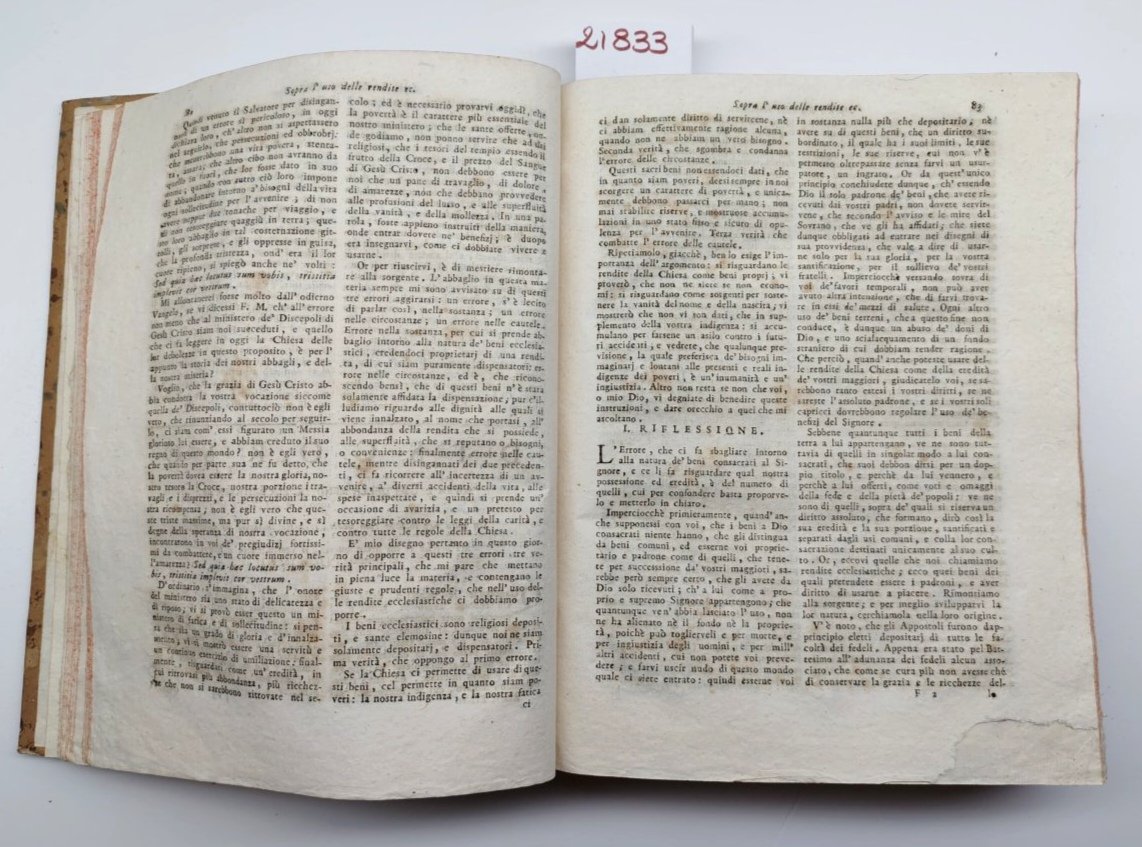 21833
Sopra l' uso delle rendite ec.
Quindi venuto il Salvatore per disingan-
narli di un errore sì pericoloso, in oggi
dichiara loro, ch' altro non si aspettassero
nel seguirlo, che persecuzioni ed obbrobrj:
che menerebbono una vita povera, stenta-
ta, amara; che altro cibo non avranno da
quello in fuori, che lor fosse dato in suo
nome; quando con tutto ciò loro impone
di abbandonare intorno a' bisogni della vita
ogni sollecitudine per l' avvenire; di non
avere neppur due tonache per viaggio, e
di non tesoreggiare quaggiù in terra; que-
sto loro abbaglio in tal costernazione git-
tolli, gli sorprese, e gli oppresse in guisa,
che la profonda tristezza, ond' era il lor
cuore ripieno, si spiegò anche ne' volti:
Sed quia hæc locutus sum vobis, tristitia
implevit cor vestrum.
Mi allontanerei forse molto dall' odierno
Vangelo, se vi dicessi F. M. ch' all' errore
non meno che al ministero de' Discepoli di
Gesù Cristo siam noi succeduti, e quello
che ci fa leggere in oggi la Chiesa delle
lor debolezze in questo proposito, è per l'
appunto la storia dei nostri abbagli, e del-
la nostra miseria?
Voglio, che la grazia di Gesù Cristo ab-
bia condotta la vostra vocazione siccome
quella de' Discepoli, contuttociò non è egli
vero, che rinunziando al secolo per seguir-
lo, ci siam com' essi figurato un Messia
glorioso lui essere, e abbiam creduto il suo
regno di questo mondo? non è egli vero,
che quando per parte sua ne fu detto, che
la povertà dovea essere la nostra gloria, no-
stro tesoro la Croce, nostra porzione i tra-
vagli e i disprezzi, e le persecuzioni la no-
stra ricompensa; non è egli vero che que-
ste triste massime, ma pur sì divine, e sì
degne della speranza di nostra vocazione,
incontrarono in voi de' pregiudizj fortissi-
mi da combattere, e un cuore immerso nel-
l'amarezza? Sed quia hæc locutus sum vo-
bis, tristitia implevit cor vestrum.
D'ordinario s'immagina, che l' onore
del ministero sia uno stato di delicatezza e
di riposo; vi si provò esser questo un mi-
nistero di fatica e di sollecitudine: si pen-
sa che sia un grado di gloria e d' innalza-
mento; vi si mostrò essere una servitù e
un continuo esercizio di umiliazione: final-
mente, risguardasi come un' eredità, in
cui ritrovasi più abbondanza, più ricchez-
ze che non si sarebbono ritrovate nel se-
colo; ed è necessario provarvi oggidì, che
la povertà è il carattere più essenziale del
nostro ministero; che le sante offerte, on-
de godiamo, non ponno servire che ad usi
religiosi, che i tesori del tempio essendo il
frutto della Croce, e il prezzo del Sangue
di Gesù Cristo, non debbono essere per
noi che un pane di travaglio, di dolore,
di amarezze, non che debbano provvedere
alle profusioni del lusso, e alle superfluità
della vanità, e della mollezza. In una pa-
rola, foste appieno instruiti della maniera,
onde entrar dovete ne' benefizj; è duopo
ora insegnarvi, come ci dobbiate vivere e
usarne.
Or per riuscirvi, è di mestiere rimonta-
re alla sorgente. L' abbaglio in questa ma-
teria sempre mi sono avvisato su di questi
tre errori aggirarsi: un errore, s' è lecito
di parlar così, nella sostanza; un errore
nelle circostanze; un errore nelle cautele.
Errore nella sostanza, per cui si prende ab-
baglio intorno alla natura de' beni ecclesia-
stici, credendoci proprietarj di una rendi-
ta, di cui siam puramente dispensatori: er-
rore nelle circostanze, ed è, che ricono-
scendo bensì, che di questi beni n' è stata
solamente affidata la dispensazione; pur c'il-
ludiamo riguardo alle dignità alle quali si
viene innalzato, al nome che portasi, all'
abbondanza della rendita che si possiede,
alle superfluità, che si reputano o bisogni,
o convenienze: finalmente errore nelle cau-
tele, mentre disingannati dei due preceden-
ti, ci fa ricorrere all' incertezza di un av-
venire, a' diversi accidenti della vita, alle
spese inaspettate, e quindi si prende un'
occasione di avarizia, e un pretesto per
tesoreggiare contro le leggi della carità, e
contro tutte le regole della Chiesa.
E' mio disegno pertanto in questo gior-
no di opporre a questi tre errori tre ve-
rità principali, che mi pare che mettano
in piena luce la materia, e contengano le
giuste e prudenti regole, che nell' uso del-
le rendite ecclesiastiche ci dobbiamo pro-
porre.
I beni ecclesiastici sono religiosi deposi-
ti, e sante elemosine: dunque noi ne siam
solamente depositarj, e dispensatori. Pri-
ma verità, che oppongo al primo errore.
Se la Chiesa ci permette di usare di que-
sti beni, cel permette in quanto siam po-
veri: la nostra indigenza, e la nostra fatica
ci
Sopra l' uso delle rendite ec.
83
ci dan solamente diritto di servircene, nè
ci abbiam effettivamente ragione alcuna,
quando non ne abbiam un vero bisogno.
Seconda verità, che sgombra e condanna
l'errore delle circostanze.
Questi sacri beni non essendoci dati, che
in quanto siam poveri, deesi sempre in noi
scorgere un carattere di povertà, e unica-
mente debbono passarci per mano; non
mai stabilire riserve, e mostruose accumu-
lazioni in uno stato fisso e sicuro di opu-
lenza per l' avvenire. Terza verità che
combatte l' errore delle cautele.
Ripetiamolo, giacchè, ben lo esige l' im-
portanza dell' argomento: si risguardano le
rendite della Chiesa come beni proprj; vi
proverò, che non ne siete se non econo-
mi: si risguardano come sorgenti per soste-
nere la vanità del nome e della nascita; vi
mostrerò che non vi son dati, che in sup-
plemento della vostra indigenza: si accu-
mulano per farsene un asilo contro i futu-
ri accidenti, e vedrete, che qualunque pre-
visione, la quale preferisca de' bisogni im-
maginarj e lontani alle presenti e reali in-
digenze dei poveri, è un' inumanità e un'
ingiustizia. Altro non resta se non che voi,
o mio Dio, vi degniate di benedire queste
instruzioni, e dare orecchio a quei che mi
ascoltano.
I. RIFLESSIONE.
L'Errore, che ci fa sbagliare intorno
alla natura de' beni consacrati al Si-
gnore, e ce li fa risguardare qual nostra
possessione ed eredità, è del numero di
quelli, cui per confondere basta proporve-
lo e metterlo in chiaro.
Imperciocchè primieramente, quand' an-
che supponessi con voi, che i beni a Dio
consacrati niente hanno, che gli distingua
da beni comuni, ed esserne voi proprie-
tario e padrone come di quelli, che tene-
te per successione da' vostri maggiori, sa-
rebbe però sempre certo, che gli avete da
Dio solo ricevuti; ch' a lui come a pro-
prio e supremo Signore appartengono; che
quantunque ven' abbia lasciato l' uso, non
ne ha alienato nè il fondo nè la proprie-
tà, poichè può toglierveli e per morte, e
per ingiustizia degli uomini, e per mill'
altri accidenti, cui non potete voi preve-
dere; e farvi uscir nudo di questo mondo
quale ci siete entrato: quindi esserne voi
in sostanza nulla più che depositario; nè
avere su di questi beni, che un diritto su-
bordinato, il quale ha i suoi limiti, le sue
restrizioni, le sue riserve, cui non v' è
permesso oltrepassare senza farvi un usur-
patore, un ingrato. Or da quest' unico
principio conchiudere dunque, ch' essendo
Dio il solo padrone de' beni, che avete ri-
cevuti dai vostri padri, non dovete servir-
vene, che secondo l' avviso e le mire del
Sovrano, che ve gli ha affidati; che siete
dunque obbligati ad entrare nei disegni di
sua provvidenza, che vale a dire di usar-
ne solo per la sua gloria, per la vostra
santificazione, per il sollievo de' vostri
fratelli. Imperciocchè versando sovra di
voi de' favori temporali, non può aver
avuto altra intenzione, che di farvi trova-
re in essi de' mezzi di salute. Ogni altro
uso de' beni terreni, che a questo fine non
conduce, è dunque un abuso de' doni di
Dio, e uno scialacquamento di un fondo
straniero di cui dobbiam render ragione.
Che perciò, quand' anche poteste usare del-
le rendite della Chiesa come della eredità
de' vostri maggiori, giudicatelo voi, se sa-
rebbono tanto estesi i vostri diritti, se ne
sareste l' assoluto padrone, e se i vostri soli
capricci dovrebbono regolare l' uso de' be-
nefizj del Signore.
Sebbene quantunque tutti i beni della
terra a lui appartengano, ve ne sono tut-
tavia di quelli in singular modo a lui con-
sacrati, che suoi debbon dirsi per un dop-
pio titolo, e perchè da lui vennero, e
perchè a lui offerti, come voti e omaggi
della fede e della pietà de' popoli: ve ne
sono di quelli, sopra de' quali si riserva un
diritto assoluto, che formano, dirò così la
sua eredità e la sua porzione, santificati e
separati dagli usi comuni, e colla lor con-
sacrazione destinati unicamente al suo cul-
to. Or, eccovi quelle che noi chiamiamo
rendite ecclesiastiche; ecco quei beni dei
quali pretendete essere i padroni, e aver
diritto di usarne a piacere. Rimontiamo
alla sorgente; e per meglio svilupparvi la
lor natura, cerchiamola nella loro origine.
V' è noto, che gli Appostoli furono dap-
principio eletti depositarj di tutte le fa-
coltà dei fedeli. Appena era stato pel Bat-
tesimo all' adunanza dei fedeli alcun asso-
ciato, che come se cura più non avesse che
di conservare la grazia e le ricchezze del-
F 2
l.